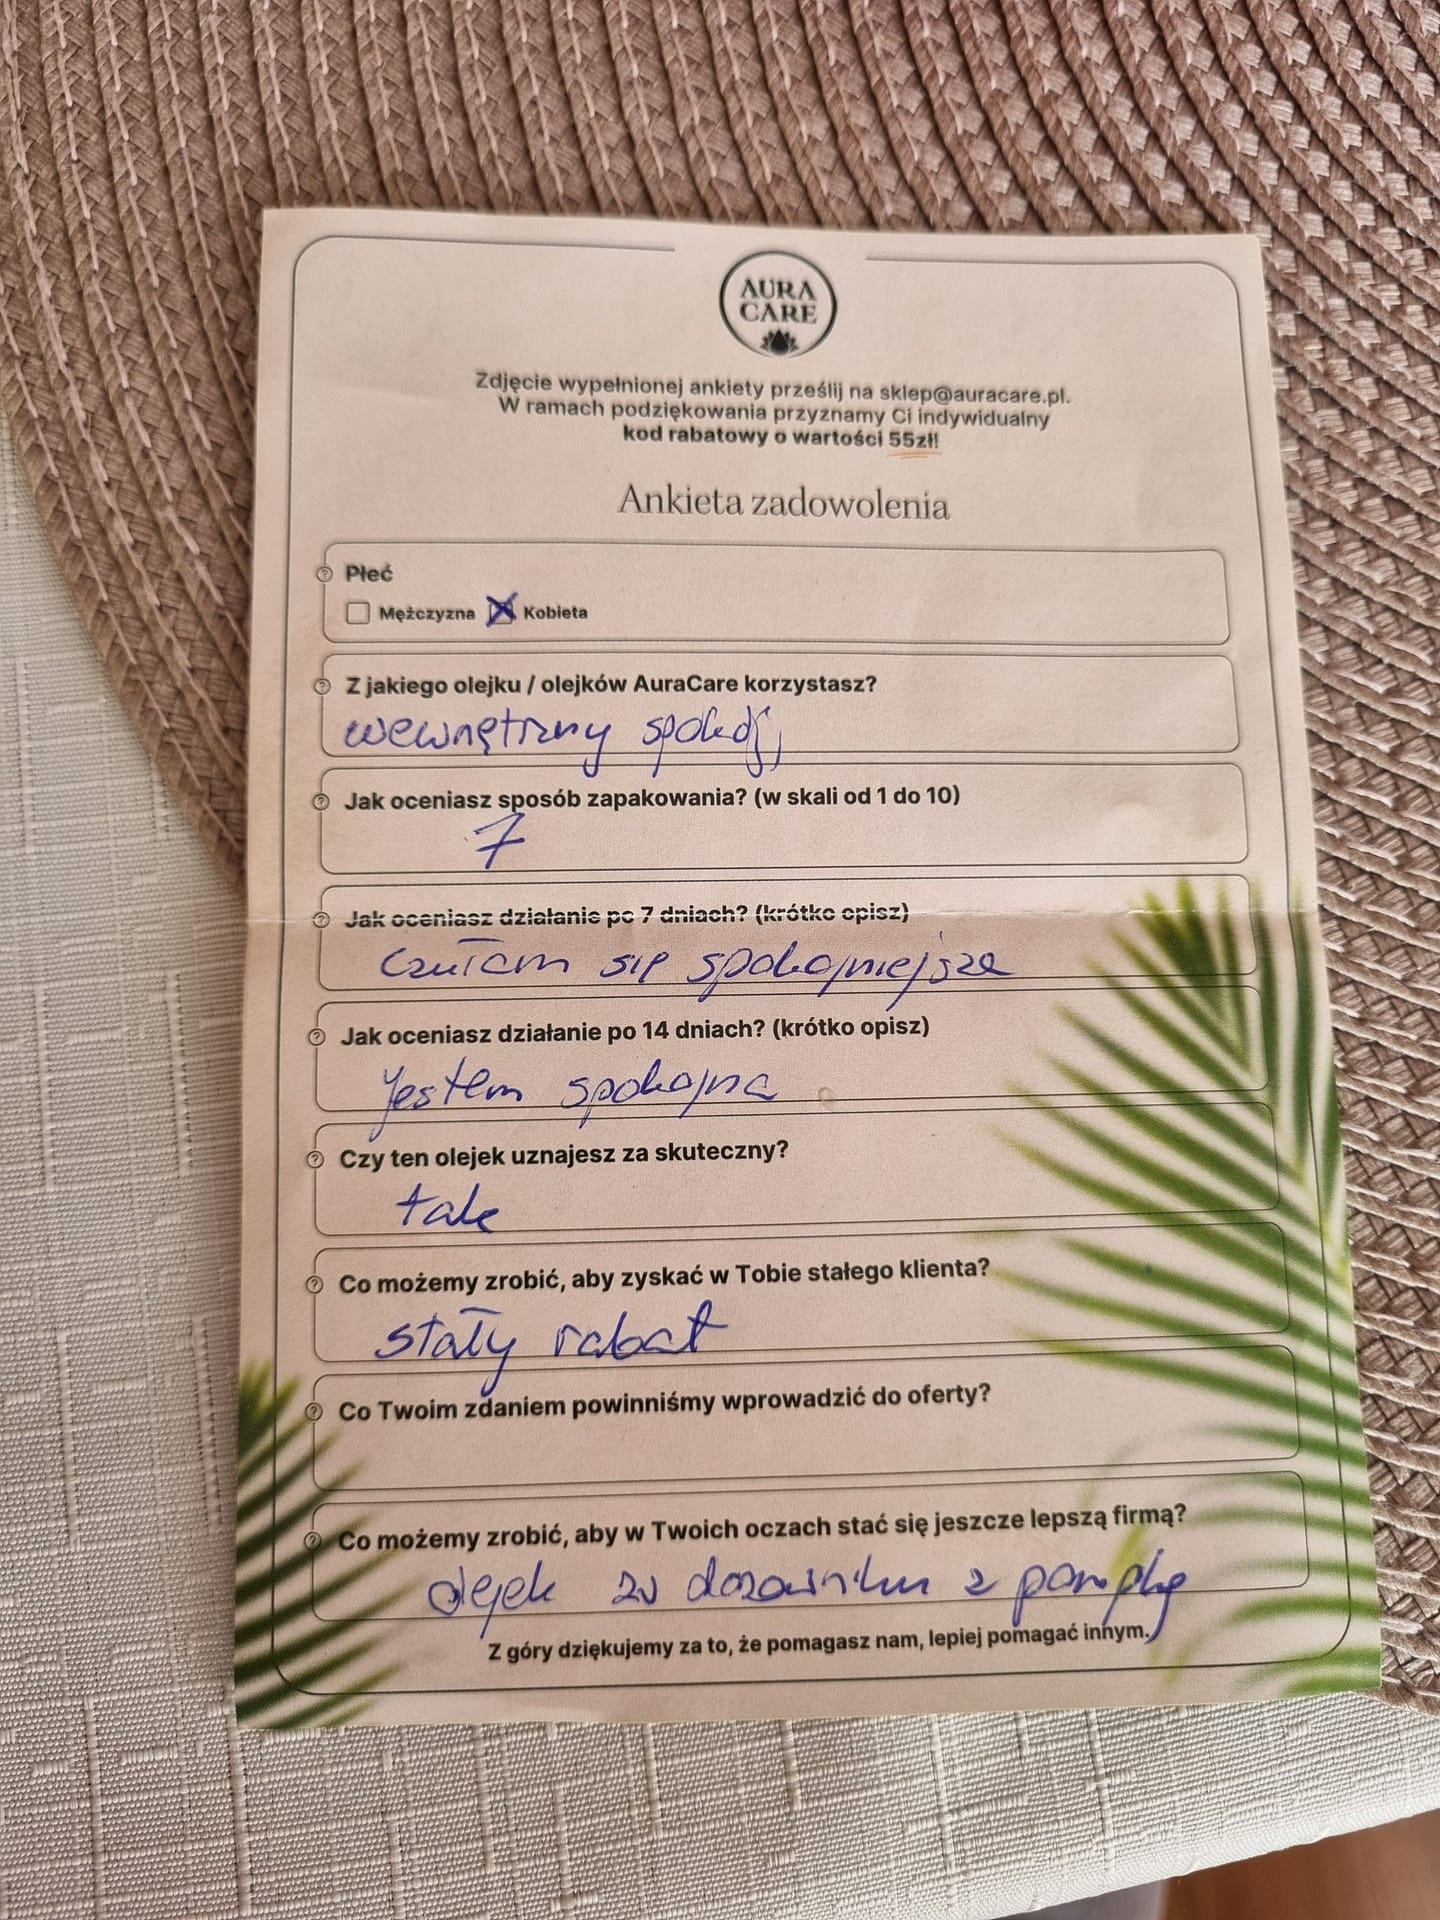 AURA
CARE
Zdjęcie wypełnionej ankiety prześlij na sklep@auracare.pl.
W ramach podziękowania przyznamy Ci indywidualny
kod rabatowy o wartości 55zł!
Ankieta zadowolenia
Płeć
Mężczyzna Kobieta
Z jakiego olejku / olejków AuraCare korzystasz?
wewnętrzny spokój,
Jak oceniasz sposób zapakowania? (w skali od 1 do 10)
7
Jak oceniasz działanie po 7 dniach? (krótko opisz)
czułam się spokojniejsza
Jak oceniasz działanie po 14 dniach? (krótko opisz)
jestem spokojna
Czy ten olejek uznajesz za skuteczny?
tak
Co możemy zrobić, aby zyskać w Tobie stałego klienta?
stały rabat
Co Twoim zdaniem powinniśmy wprowadzić do oferty?
Co możemy zrobić, aby w Twoich oczach stać się jeszcze lepszą firmą?
olejek w dozowniku z pompką
Z góry dziękujemy za to, że pomagasz nam, lepiej pomagać innym.